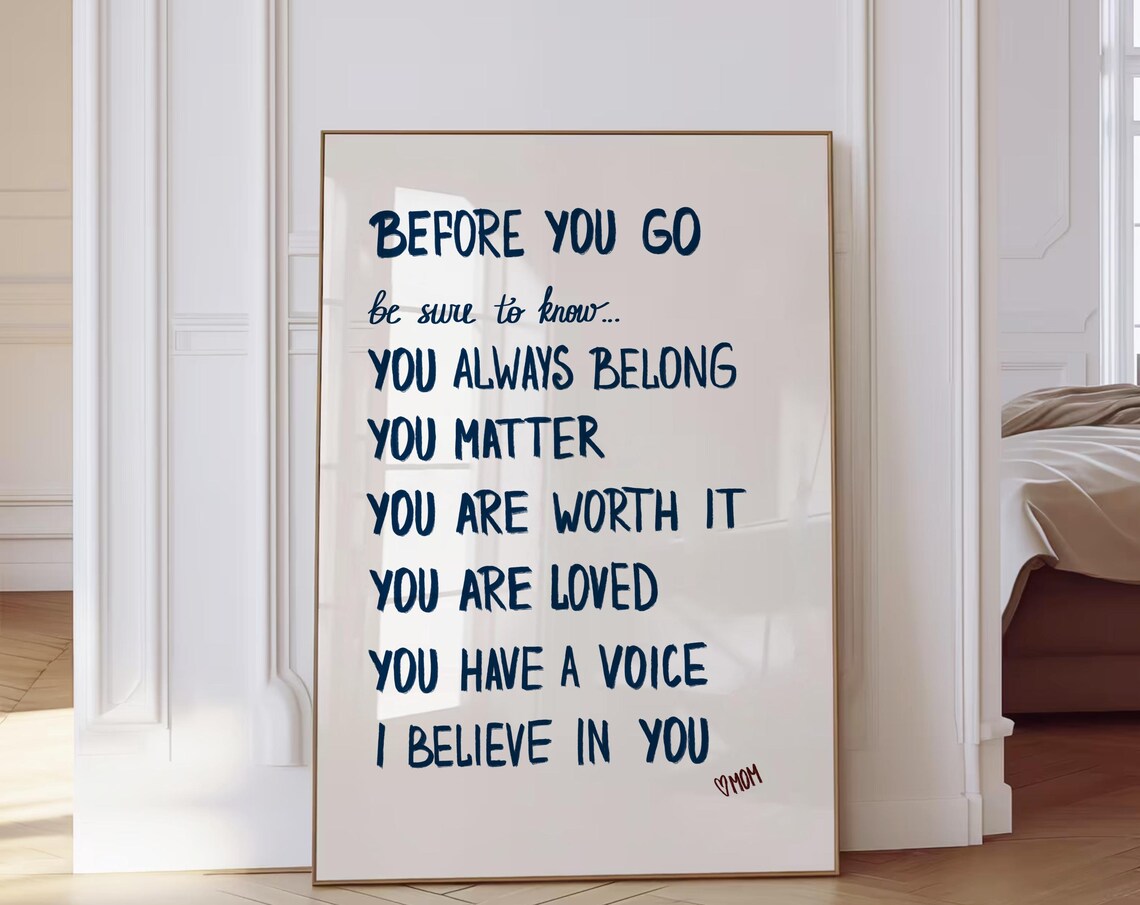 BEFORE YOU GO
be sure to know...
YOU ALWAYS BELONG
YOU MATTER
YOU ARE WORTH IT
YOU ARE LOVED
YOU HAVE A VOICE
I BELIEVE IN YOU
♡MOM